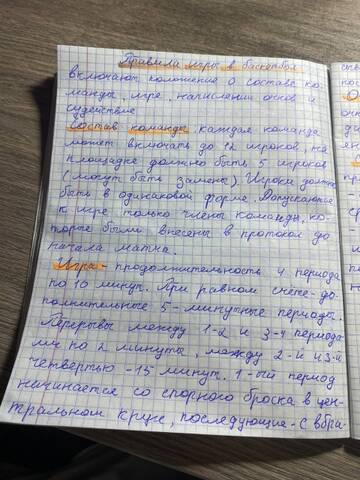 Правила игры в баскетбол
включают положение о составе ко-
манды, игре, начислении очков и
судействе
Состав команды каждая команда
может включать до 12 игроков, на
площадке должно быть 5 игроков
(могут быть замены). Игроки должны
быть в одинаковой форме. Допускаются
к игре только члены команды, ко-
торые были внесены в протокол до
начала матча.
Игра - продолжительность 4 периода
по 10 минут. При равном счете - до-
полнительные 5-минутные периоды.
Перерывы между 1-2 и 3-4 периода-
ми по 2 минуты, между 2-й и 3-й
четвертью - 15 минут. 1-ый период
начинается со спорного броска в цен-
тральном круге, последующие - с вбра-